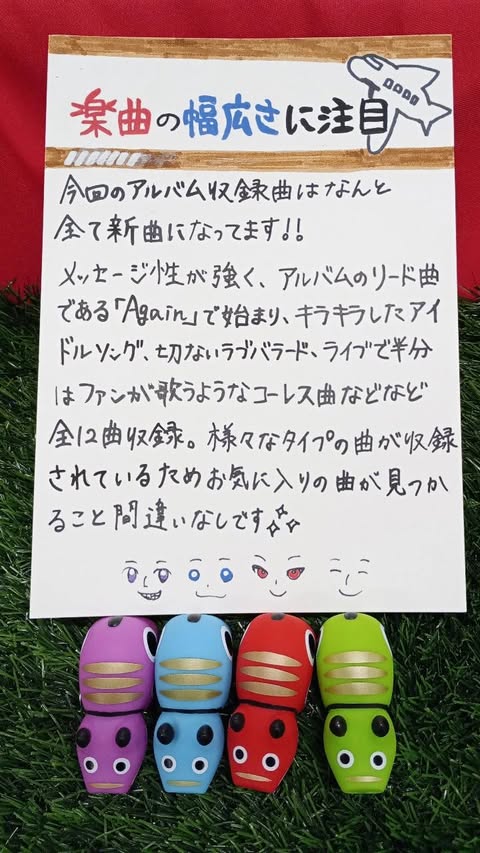 楽曲の幅広さに注目
今回のアルバム収録曲はなんと
全て新曲になってます!!
メッセージ性が強く、アルバムのリード曲
である「Again」で始まり、キラキラしたアイ
ドルソング、切ないラブバラード、ライブで半分
はファンが歌うようなコーレス曲などなど
全12曲収録。様々なタイプの曲が収録
されているためお気に入りの曲が見つか
ること間違いなしです✨